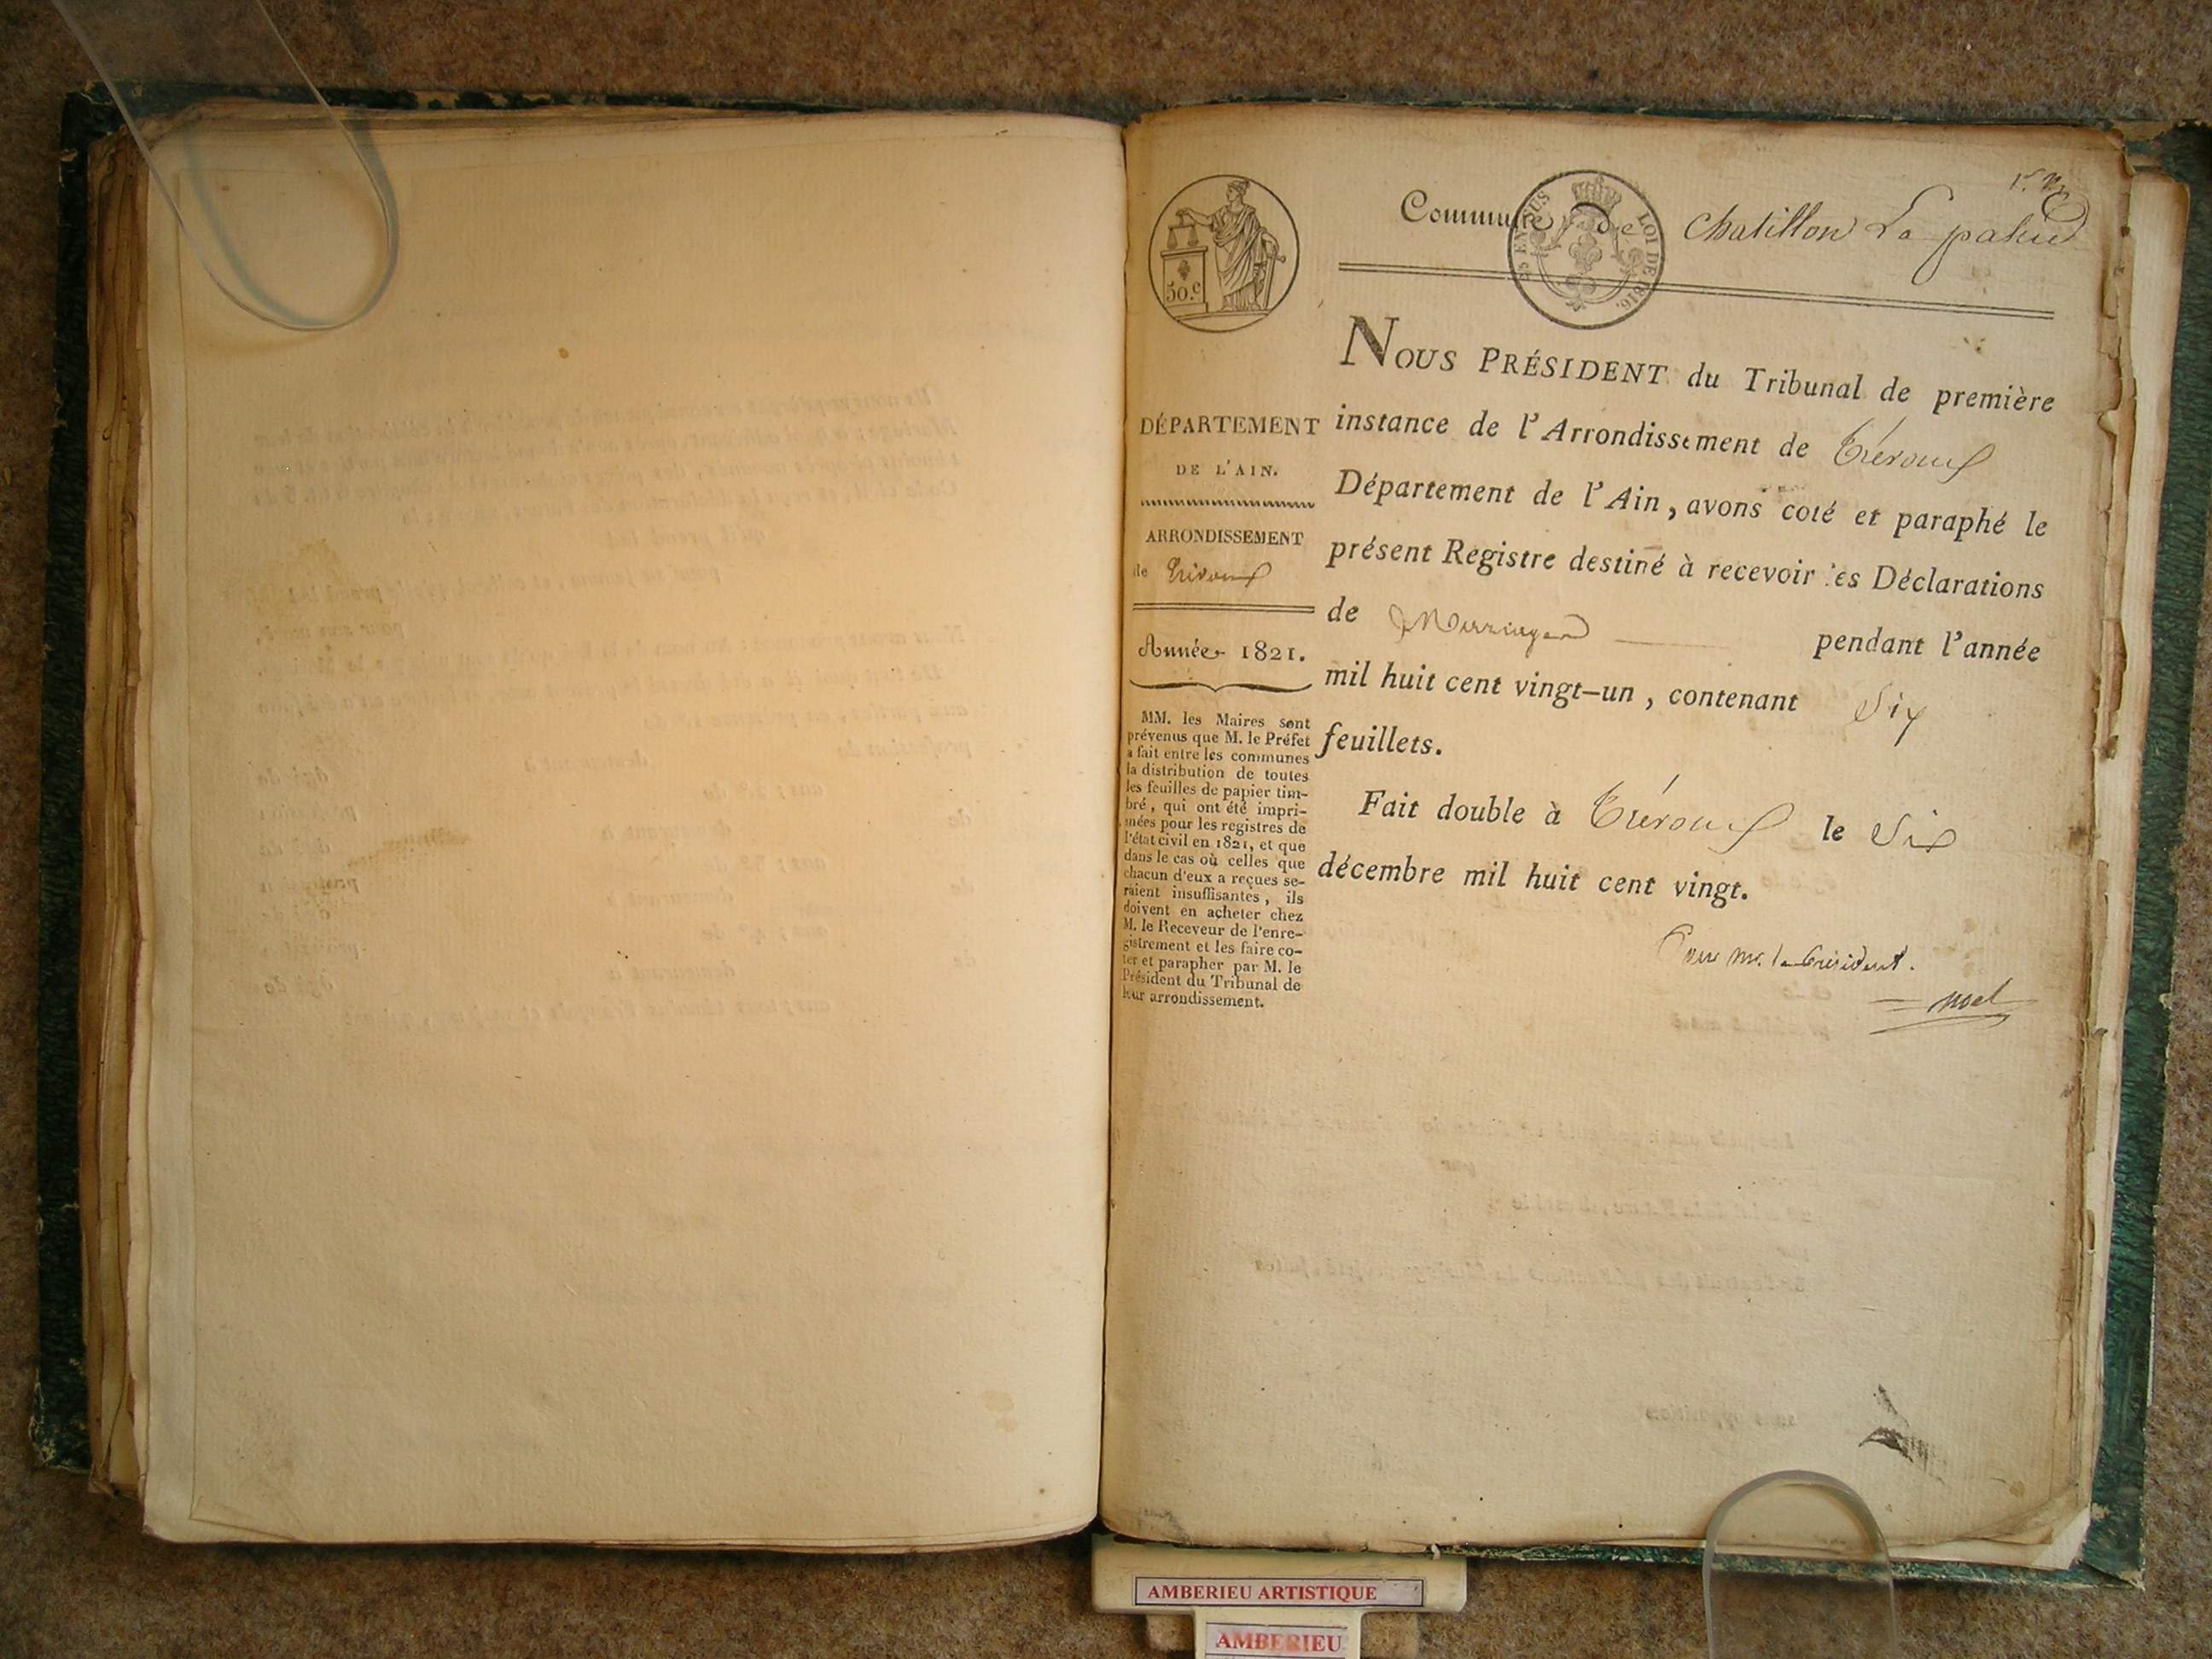 Commune de Chatillon La palud
50.c
LOI DE 1816.
NOUS PRÉSIDENT du Tribunal de première
instance de l'Arrondissement de Trévoux
Département de l'Ain, avons coté et paraphé le
présent Registre destiné à recevoir les Déclarations
de Mariages pendant l'année
mil huit cent vingt-un, contenant Six
feuillets.
Fait double à Trévoux le Six
décembre mil huit cent vingt.
Pour mr. le Président.
Noel
DÉPARTEMENT
DE L'AIN.
ARRONDISSEMENT
de Trévoux
Année 1821.
MM. les Maires sont
prévenus que M. le Préfet
a fait entre les communes
la distribution de toutes
les feuilles de papier tim-
bré, qui ont été impri-
mées pour les registres de
l'état civil en 1821, et que
dans le cas où celles que
chacun d'eux a reçues se-
raient insuffisantes, ils
doivent en acheter chez
M. le Receveur de l'enre-
gistrement et les faire co-
ter et parapher par M. le
Président du Tribunal de
leur arrondissement.
AMBERIEU ARTISTIQUE
AMBERIEU